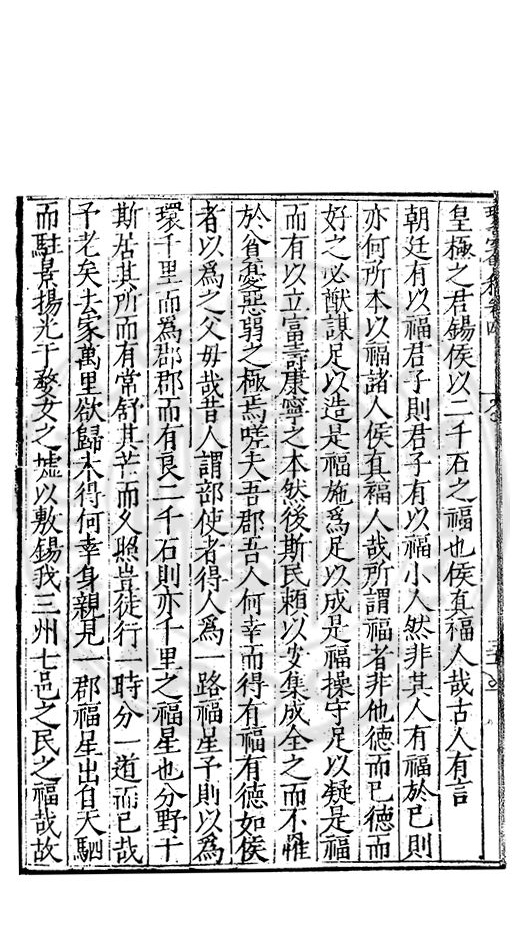 皇極之君錫侯以二千石之福也侯真福人哉古人有言
朝廷有以福君子則君子有以福小人然非其人有福於已則
亦何所本以福諸人侯真福人哉所謂福者非他德而已德而
好之必猷謀足以造是福施爲足以成是福操守足以凝是福
而有以立富壽康寧之本然後斯民賴以安集成全之而不罹
於貧憂惡弱之極焉嗟夫吾郡吾人何幸而得有福有德如侯
者以爲之父母哉昔人謂部使者得人爲一路福星予則以爲
環千里而爲郡郡而有良二千石則亦千里之福星也分野于
斯居其所而有常舒其芒而久照豈徒行一時分一道而已哉
予老矣去家萬里欲歸未得何幸身親見一郡福星出自天駟
而駐景揚光于婺女之墟以敷錫我三州七邑之民之福哉故